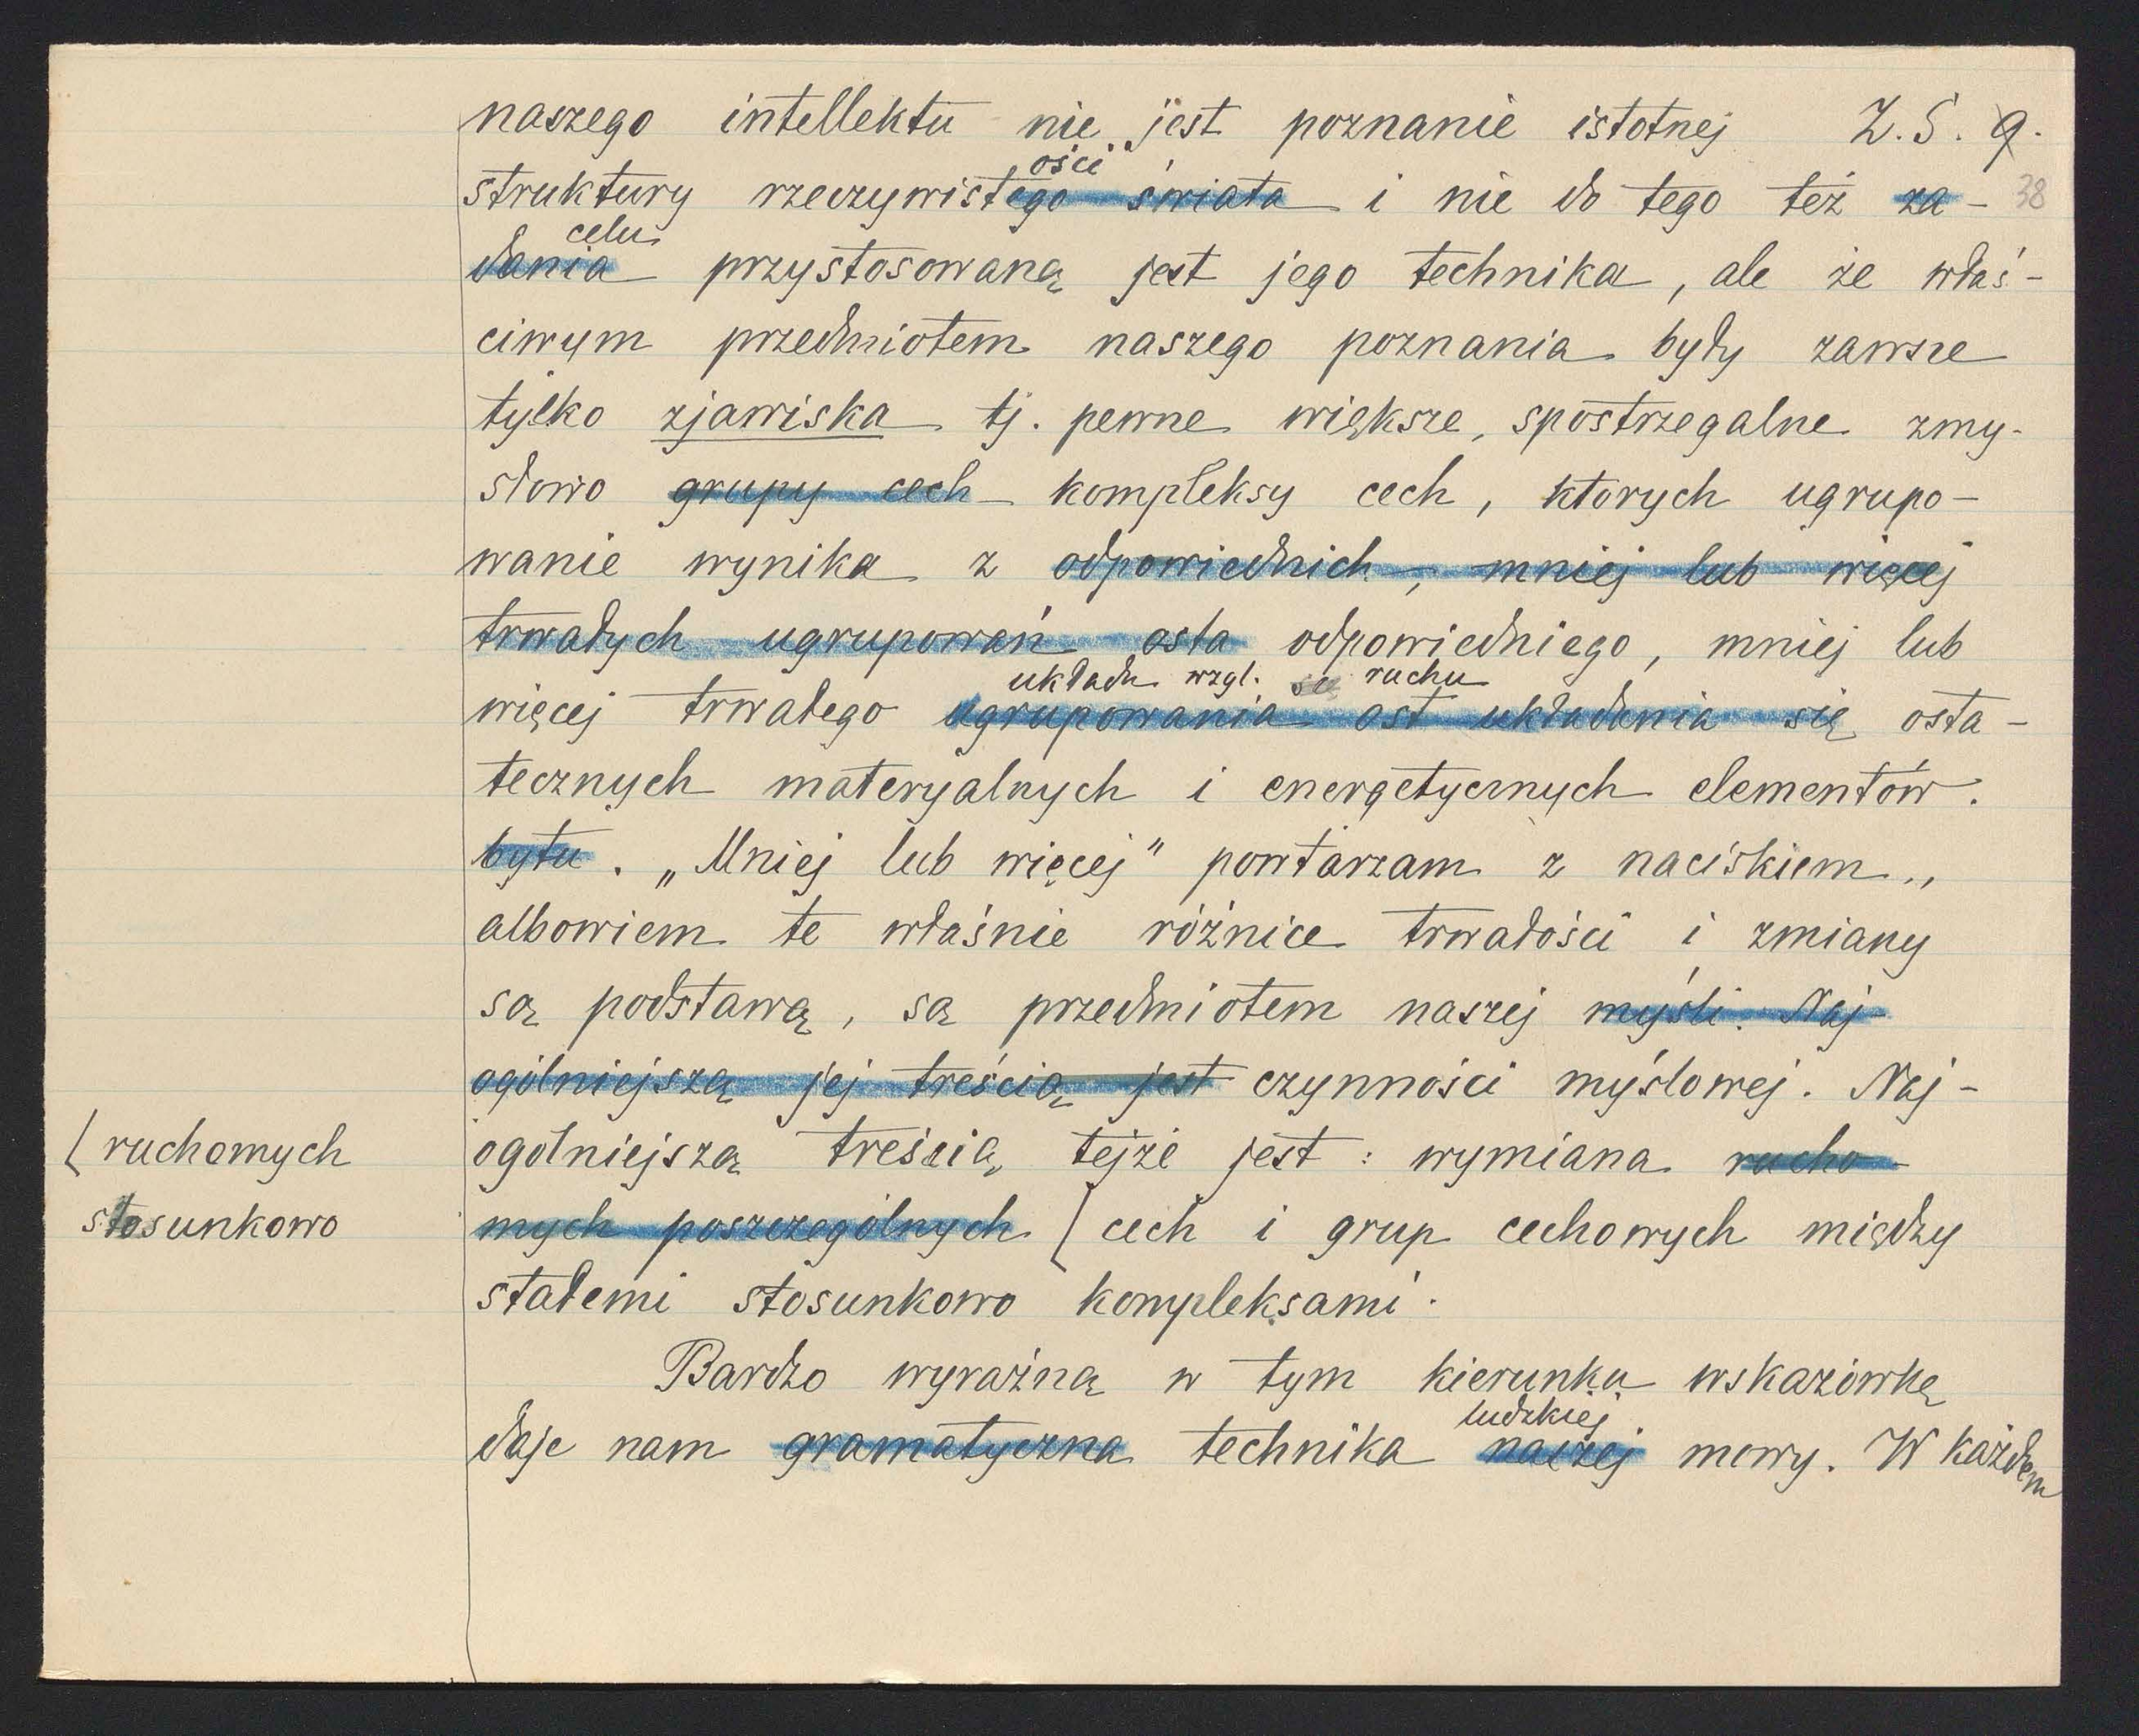 naszego intellektu nie jest poznanie istotnej Z.S. 9.
ości
struktury rzeczywistego świata i nie do tego też za- 38
celu
dania przystosowaną jest jego technika, ale że właś-
ciwym przedmiotem naszego poznania były zawsze
tylko zjawiska tj. pewne większe, spostrzegalne zmy-
słowo grupy cech kompleksy cech, ktorych ugrupo-
wanie wynika z odpowiednich, mniej lub więcej
trwałych ugrupowań osta odpowiedniego, mniej lub
układu wzgl. się ruchu
więcej trwałego ugrupowania ost układania się osta-
tecznych materyalnych i energetycznych elementów.
bytu. „Mniej lub więcej" powtarzam z naciskiem.,
albowiem te właśnie różnice trwałości i zmiany
są podstawą, są przedmiotem naszej myśli. Naj-
ogólniejszą jej treścią jest czynności myślowej. Naj-
ogólniejszą treścią tejże jest: wymiana rucho-
mych poszczególnych [ cech i grup cechowych między
[ ruchomych
stosunkowo
stałemi stosunkowo kompleksami.
Bardzo wyraźną w tym kierunku wskazówkę
ludzkiej
daje nam gramatyczna technika naszej mowy. W każdem